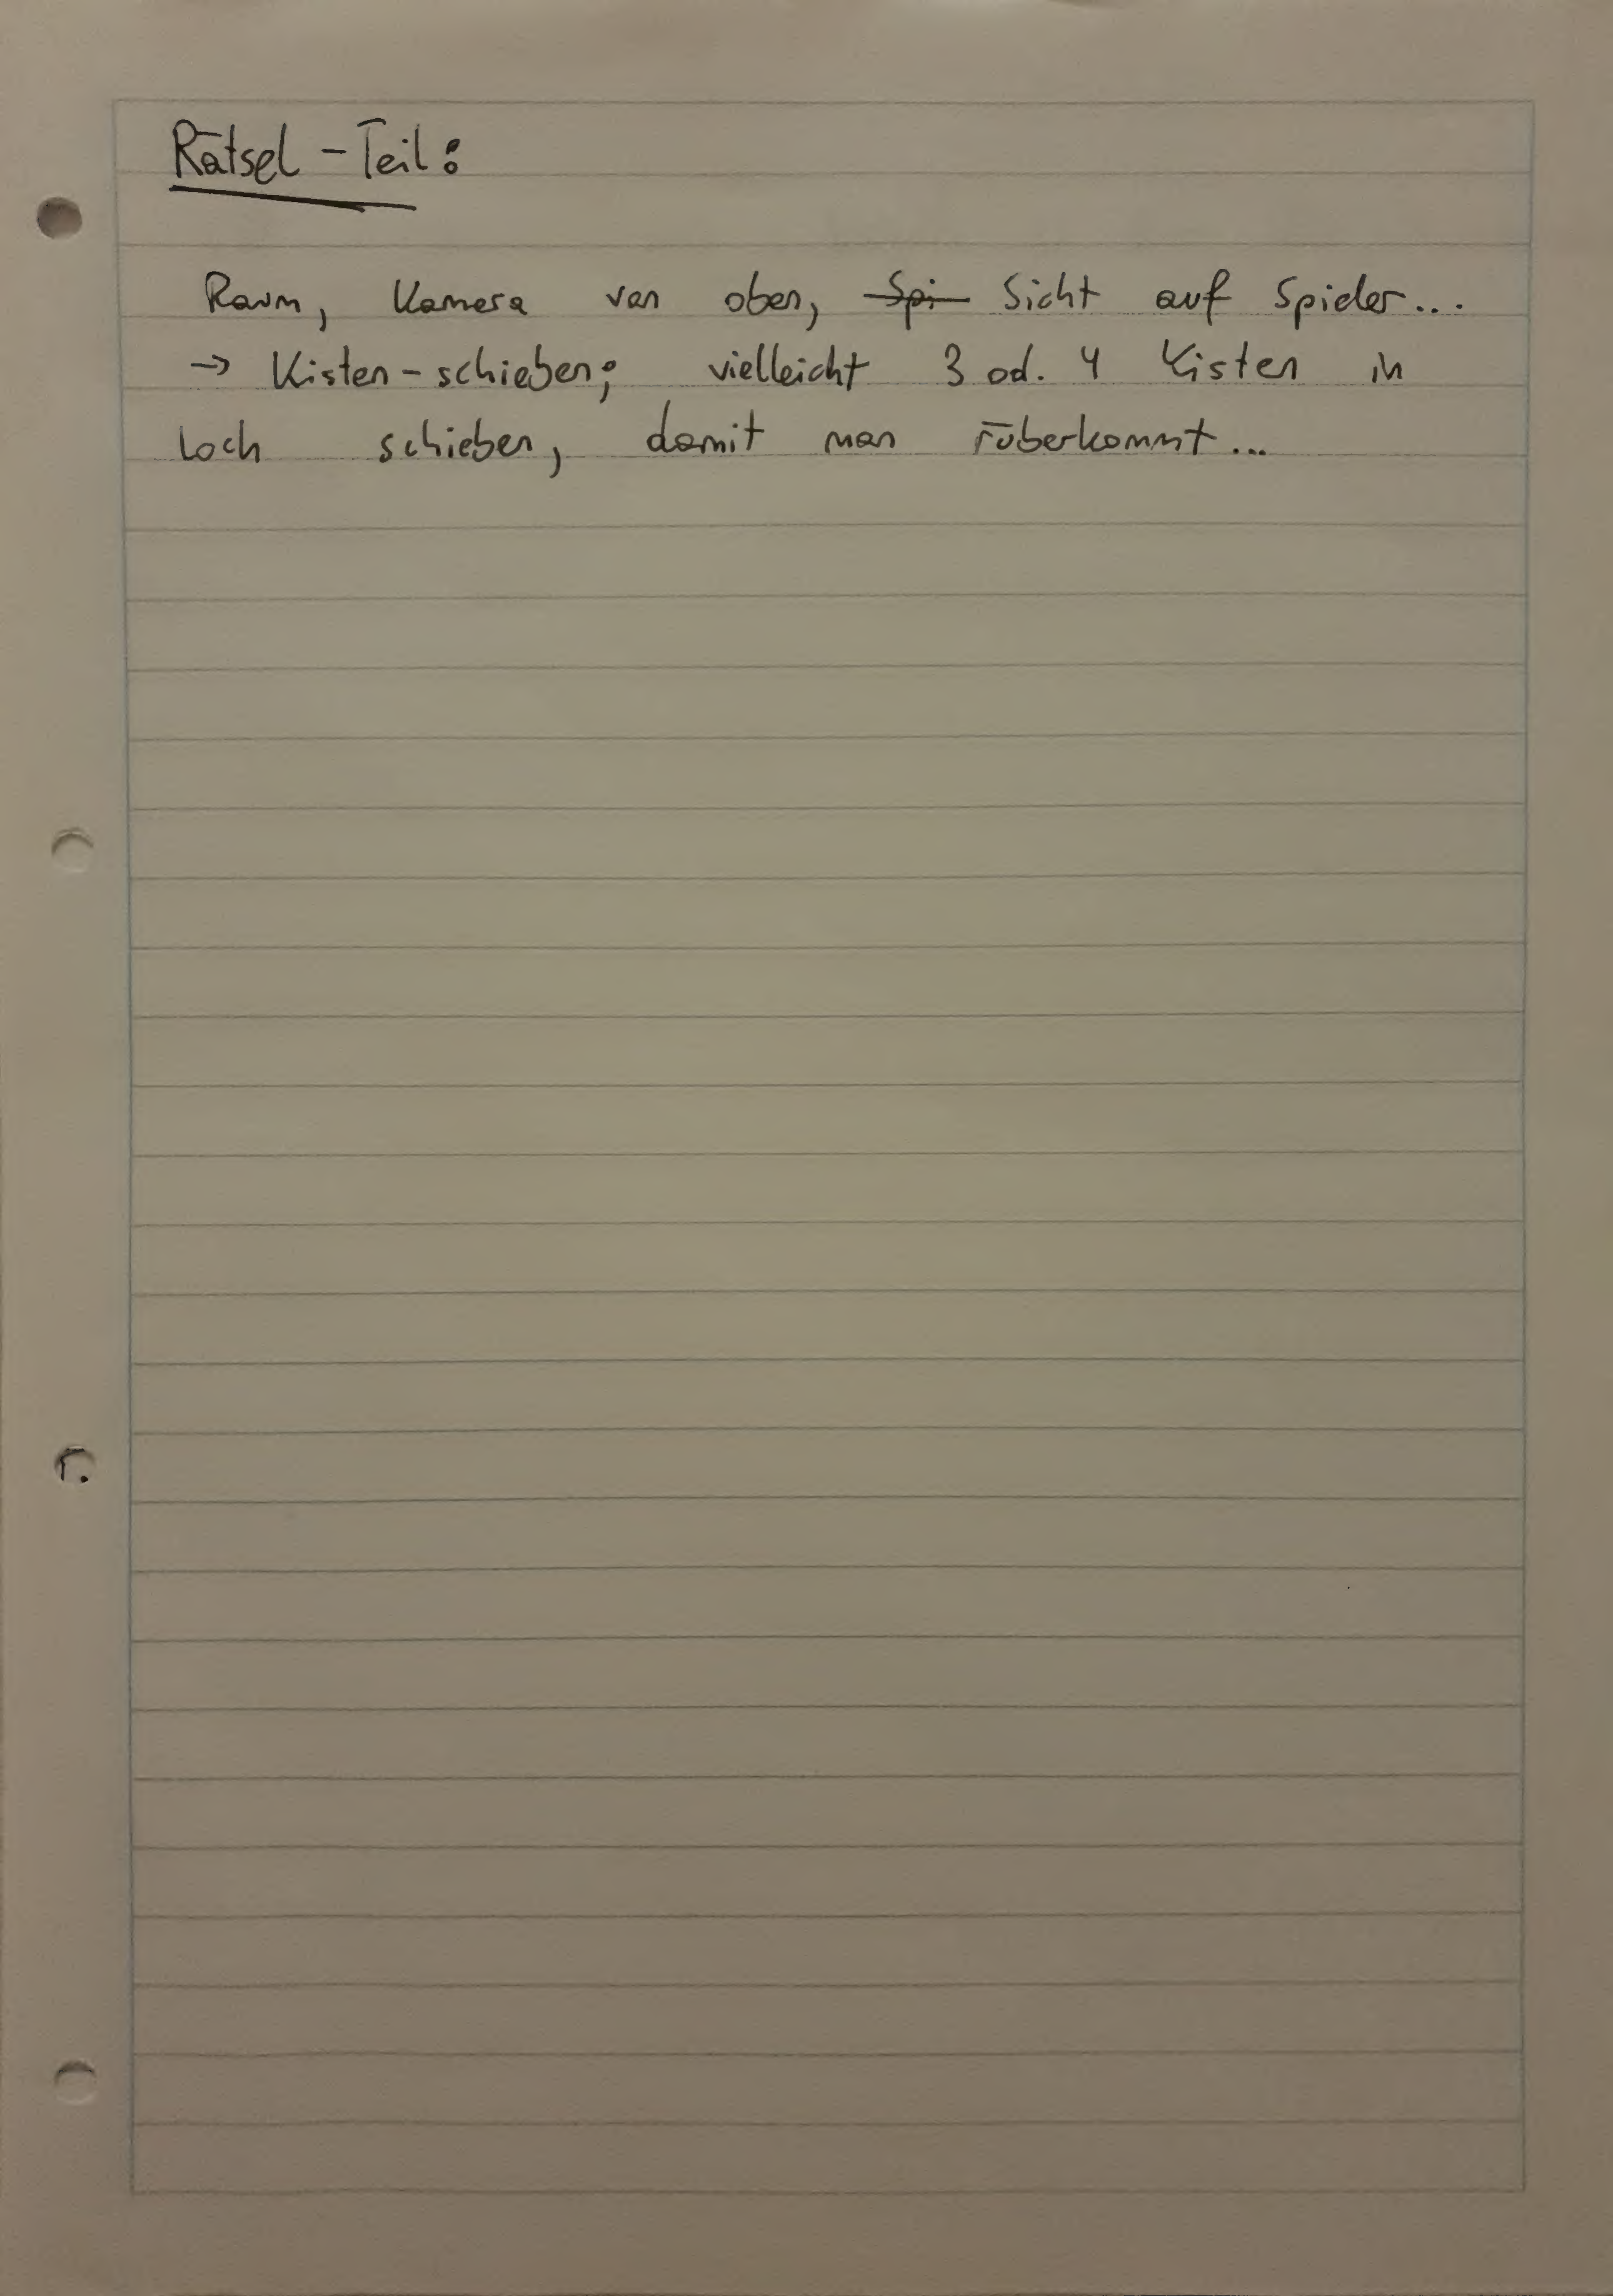 Rätsel - Teil:
Raum, Kamera von oben, Spi Sicht auf Spieler...
→ Kisten-schieben; vielleicht 3 od. 4 Kisten in
Loch schieben, damit man rüberkommt...